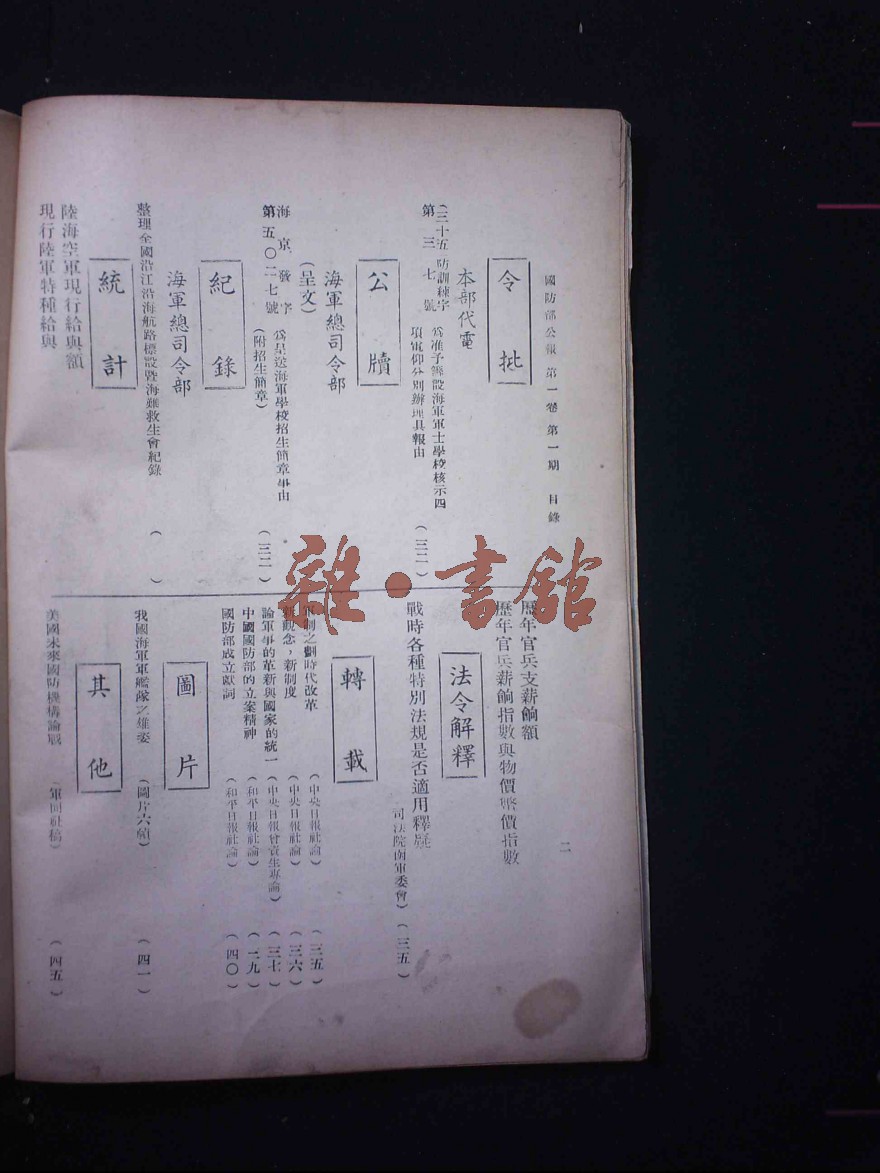 國防部公報 第一卷 第一期 目錄
二
令批
本部代電
(三十五)防訓練字
第三七號
為准予籌設海軍軍士學校核示四
項電仰分別辦理具報由
(三二)
公牘
海軍總司令部
(呈文)
海京發字
第五〇二七號
為呈送海軍學校招生簡章事由
(附招生簡章)
(三二)
紀錄
海軍總司令部
整理全國沿江沿海航路標設暨海難救生會紀錄
( )
統計
陸海空軍現行給與額
現行陸軍特種給與
歷年官兵支薪餉額
歷年官兵薪餉指數與物價幣價指數
法令解釋
戰時各種特別法規是否適用釋疑
司法院函軍委會)
(三五)
轉載
軍制之劃時代改革
(中央日報社論)
(三五)
新觀念,新制度
(中央日報社論)
(三六)
論軍事的革新與國家的統一
(中央日報曾資生專論)
(三七)
中國國防部的立案精神
(和平日報社論)
(二九)
國防部成立獻詞
(和平日報社論)
(四〇)
圖片
我國海軍軍艦隊之雄姿
(圖片六幀)
(四一)
其他
美國未來國防機構論戰
(軍聞社稿)
(四五)
雜·書館